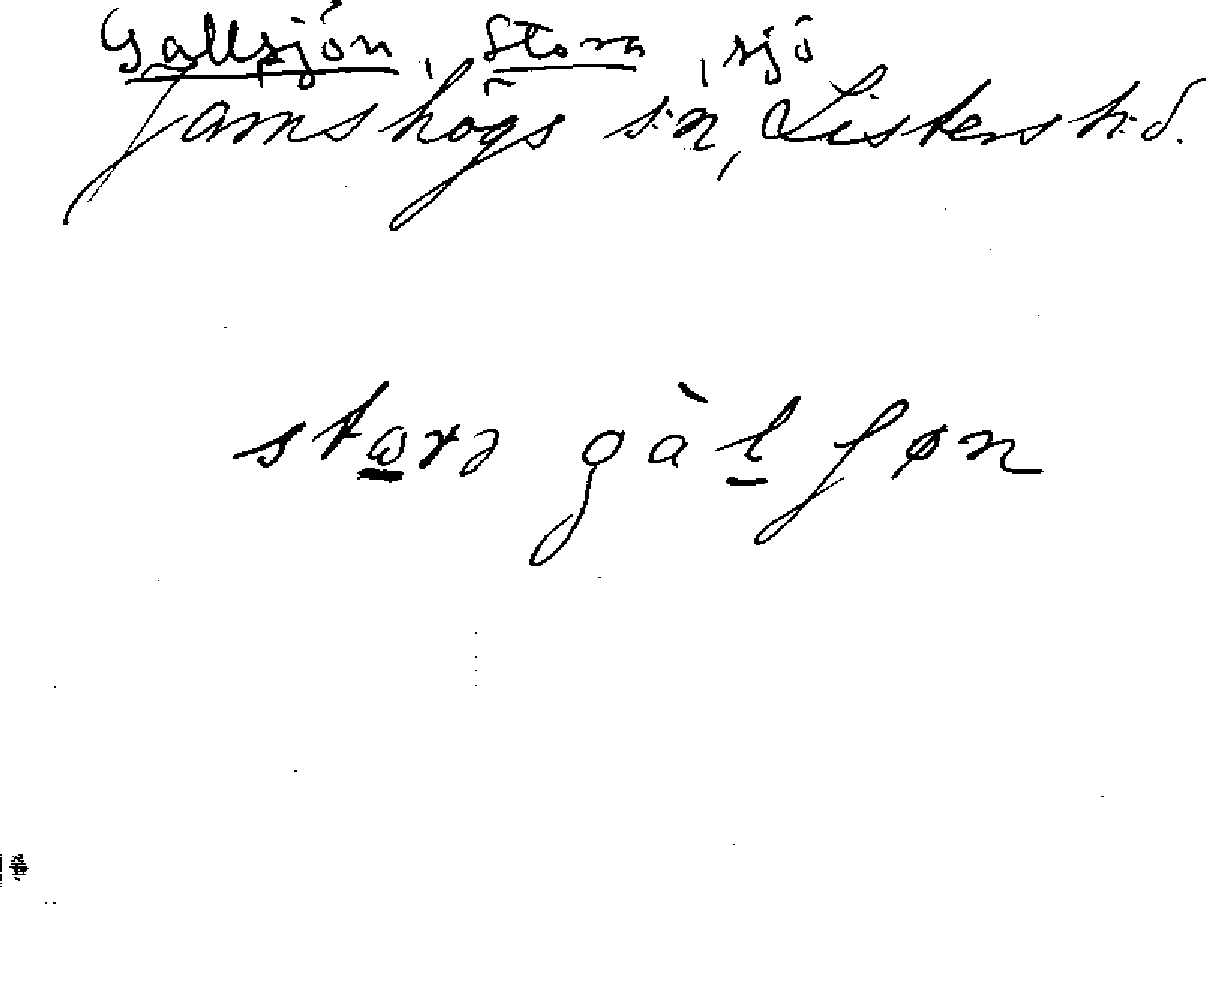 Gallsjön, Stora, sjö
Jämshögs s:n, Listers h:d.
stɷrə gàl ʃøn